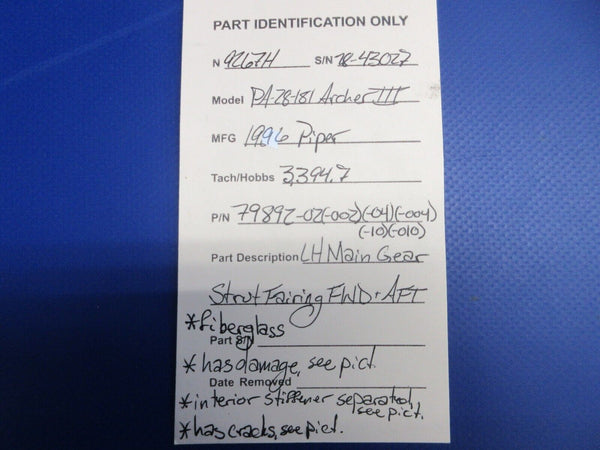 PART IDENTIFICATION ONLY
N 9267H S/N 28-43027
Model PA-28-181 Archer III
MFG 1996 Piper
Tach/Hobbs 3,394.7
P/N 79892-02(-002)(-04)(-004)
(-10)(-010)
Part Description LH Main Gear
Strut Fairing FWD & AFT
*fiberglass
Part S/N
* has damage, see pict.
Date Removed
*interior stiffener separated,
see pict.
*has cracks, see pict.